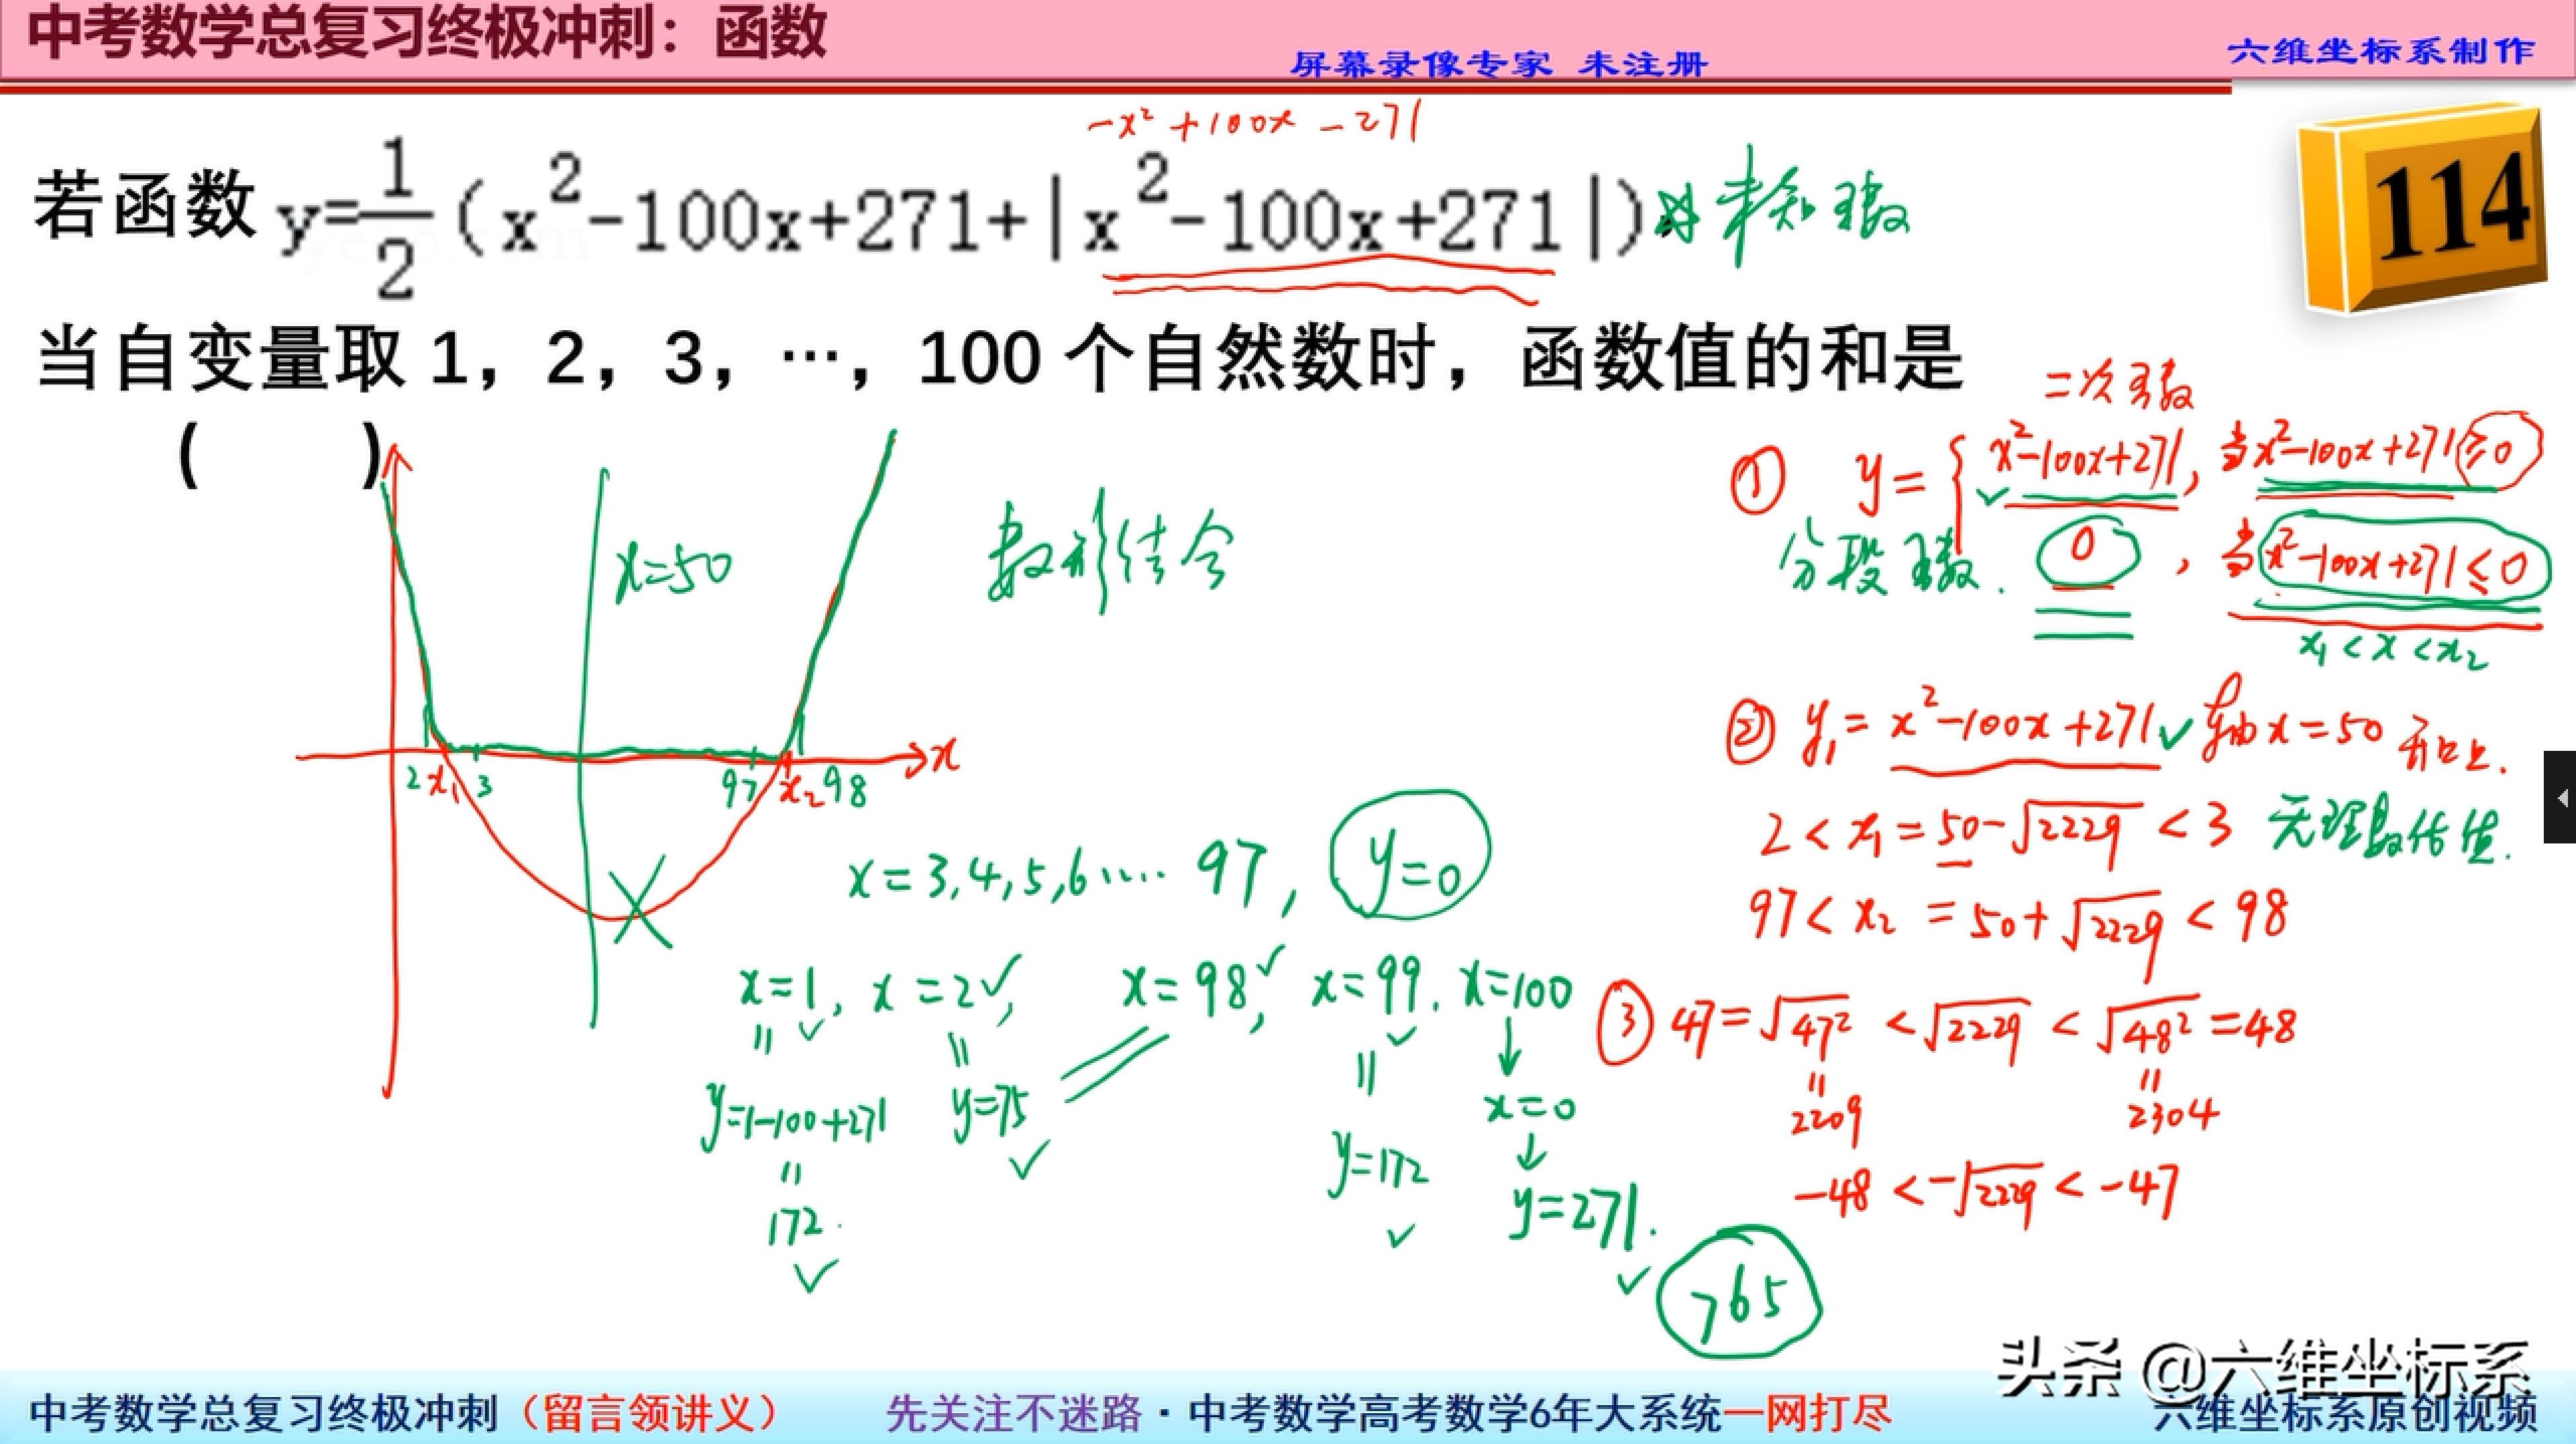 中考数学总复习终极冲刺：函数
屏幕录像专家 未注册
六维坐标系制作
-x²+100x-271
若函数 y=1/2(x²-100x+271+|x²-100x+271|)
114
当自变量取 1，2，3，…，100 个自然数时，函数值的和是
(  )
二次函数
① y={x²-100x+271, 当x²-100x+271≥0
0, 当x²-100x+271≤0
分段函数.
x₁<x<x₂
x=50
数形结合
② y₁=x²-100x+271 轴x=50 开口上.
2 x₁ 3 97 x₂ 98 x
2<x₁=50-√2229<3 无理数估值.
x=3,4,5,6….. 97, y=0
97<x₂=50+√2229<98
x=1, x=2, x=98, x=99. x=100
③ 47=√47²<√2229<√48²=48
2209 2304
y=1-100+271 y=75
x=0
y=172
-48<-√2229<-47
172.
y=271.
765
头条 @六维坐标系
中考数学总复习终极冲刺（留言领讲义） 先关注不迷路·中考数学高考数学6年大系统一网打尽 六维坐标系原创视频